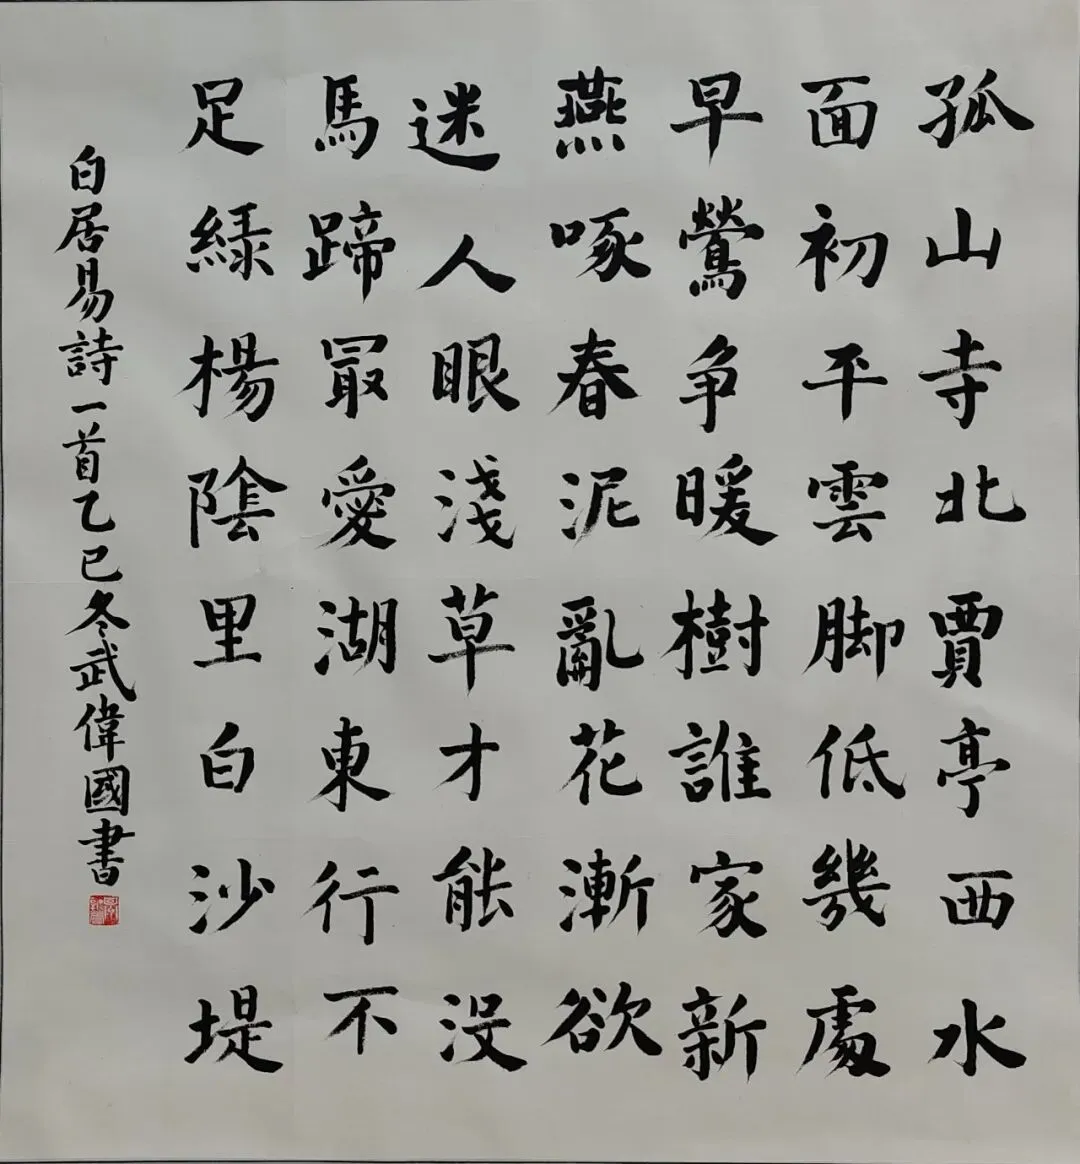 孤山寺北賈亭西水
面初平雲脚低幾處
早鶯争暖樹誰家新
燕啄春泥亂花漸欲
迷人眼淺草才能没
馬蹄冣愛湖東行不
足緑楊陰里白沙堤
白居易詩一首乙巳冬武偉國書